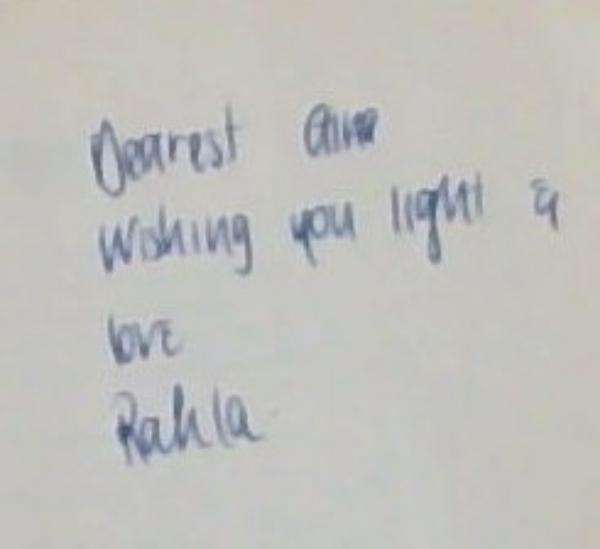 Dearest
Wishing you light &
love
Rahla